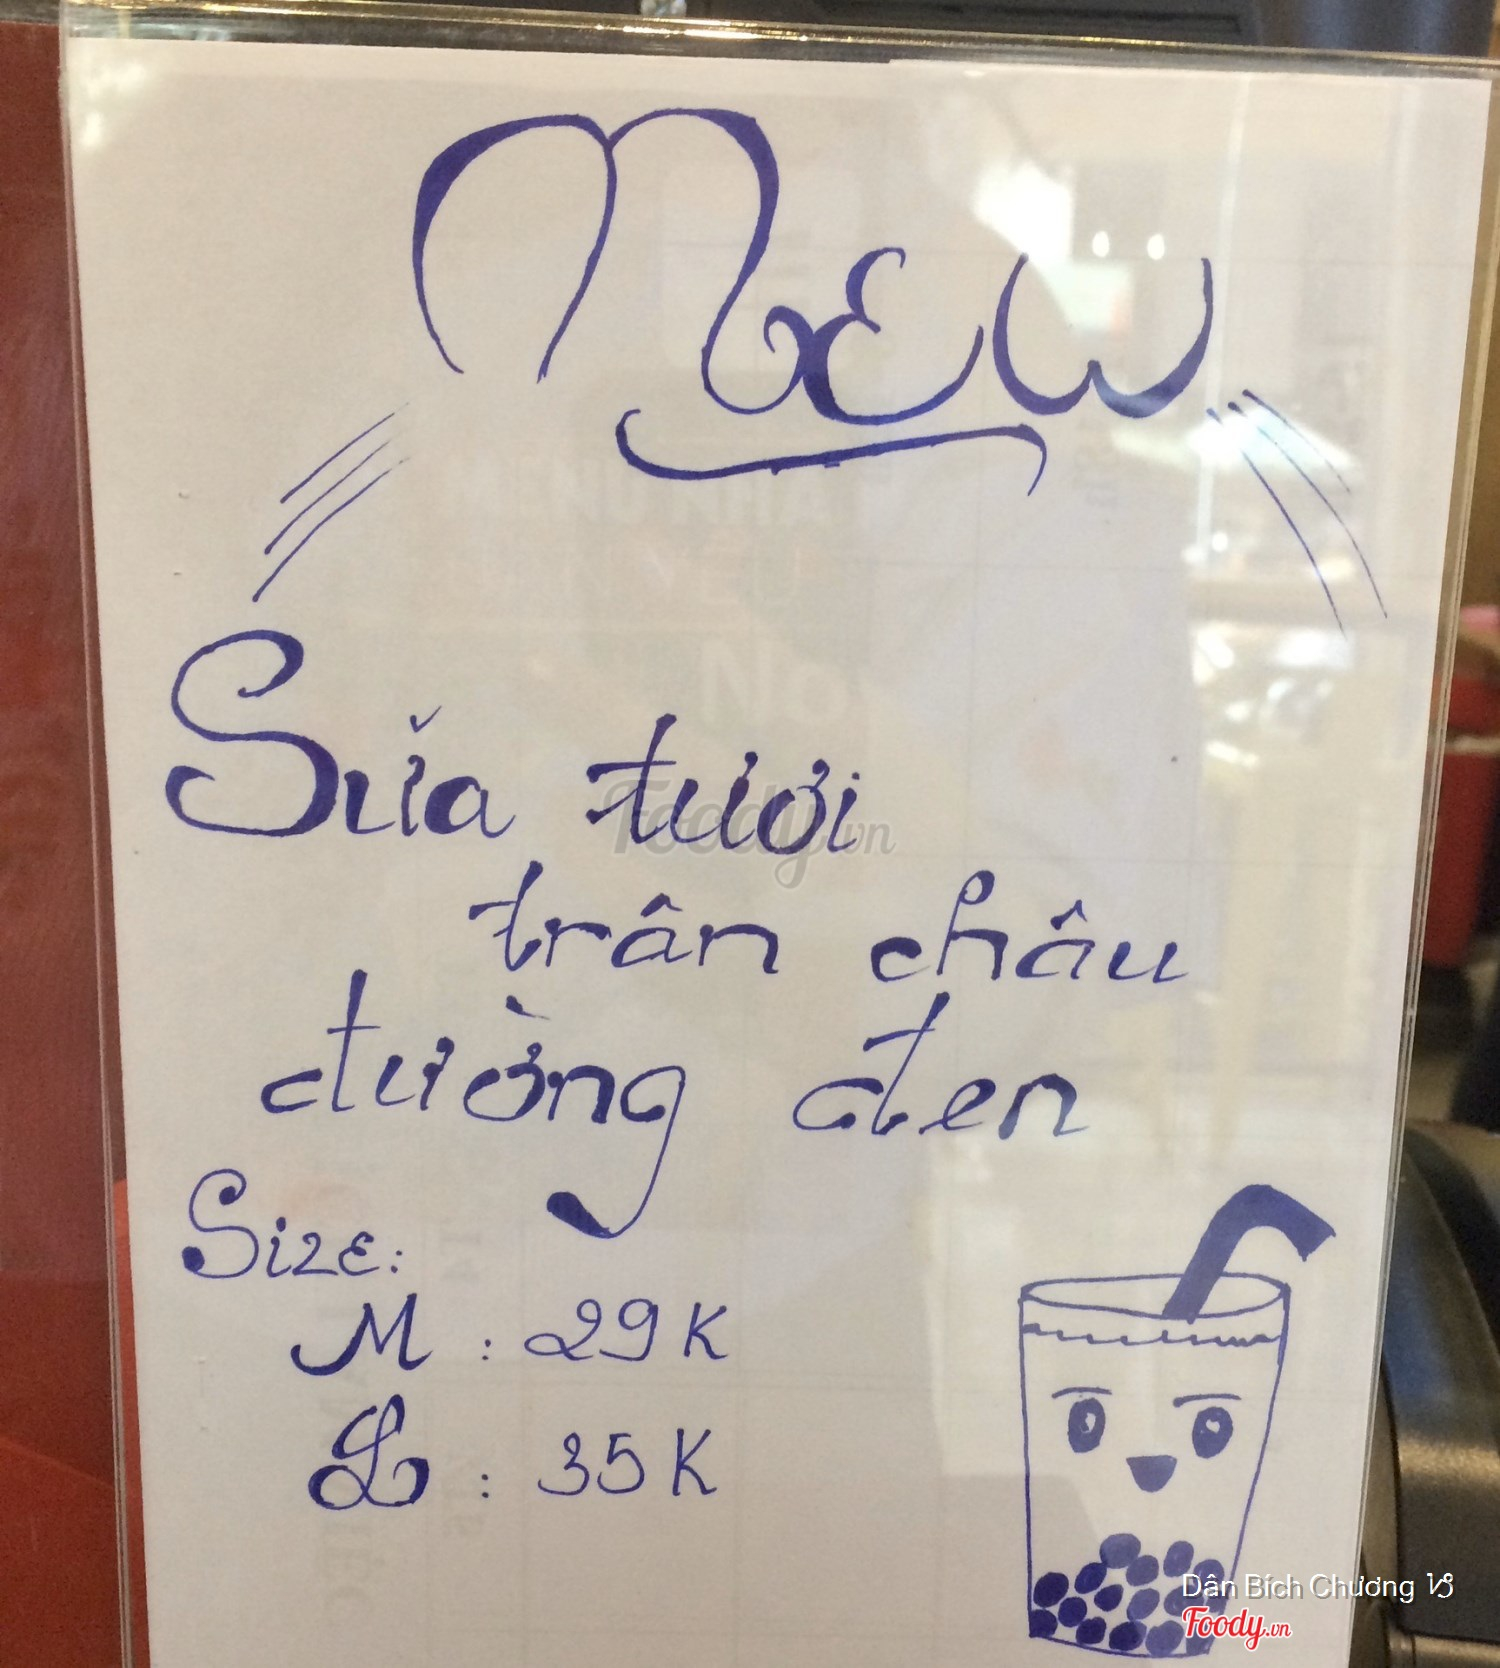 New
Sữa tươi
trân châu
đường đen
Size:
M : 29K
L : 35K
Foody.vn
Dân Bích Chương
Foody.vn